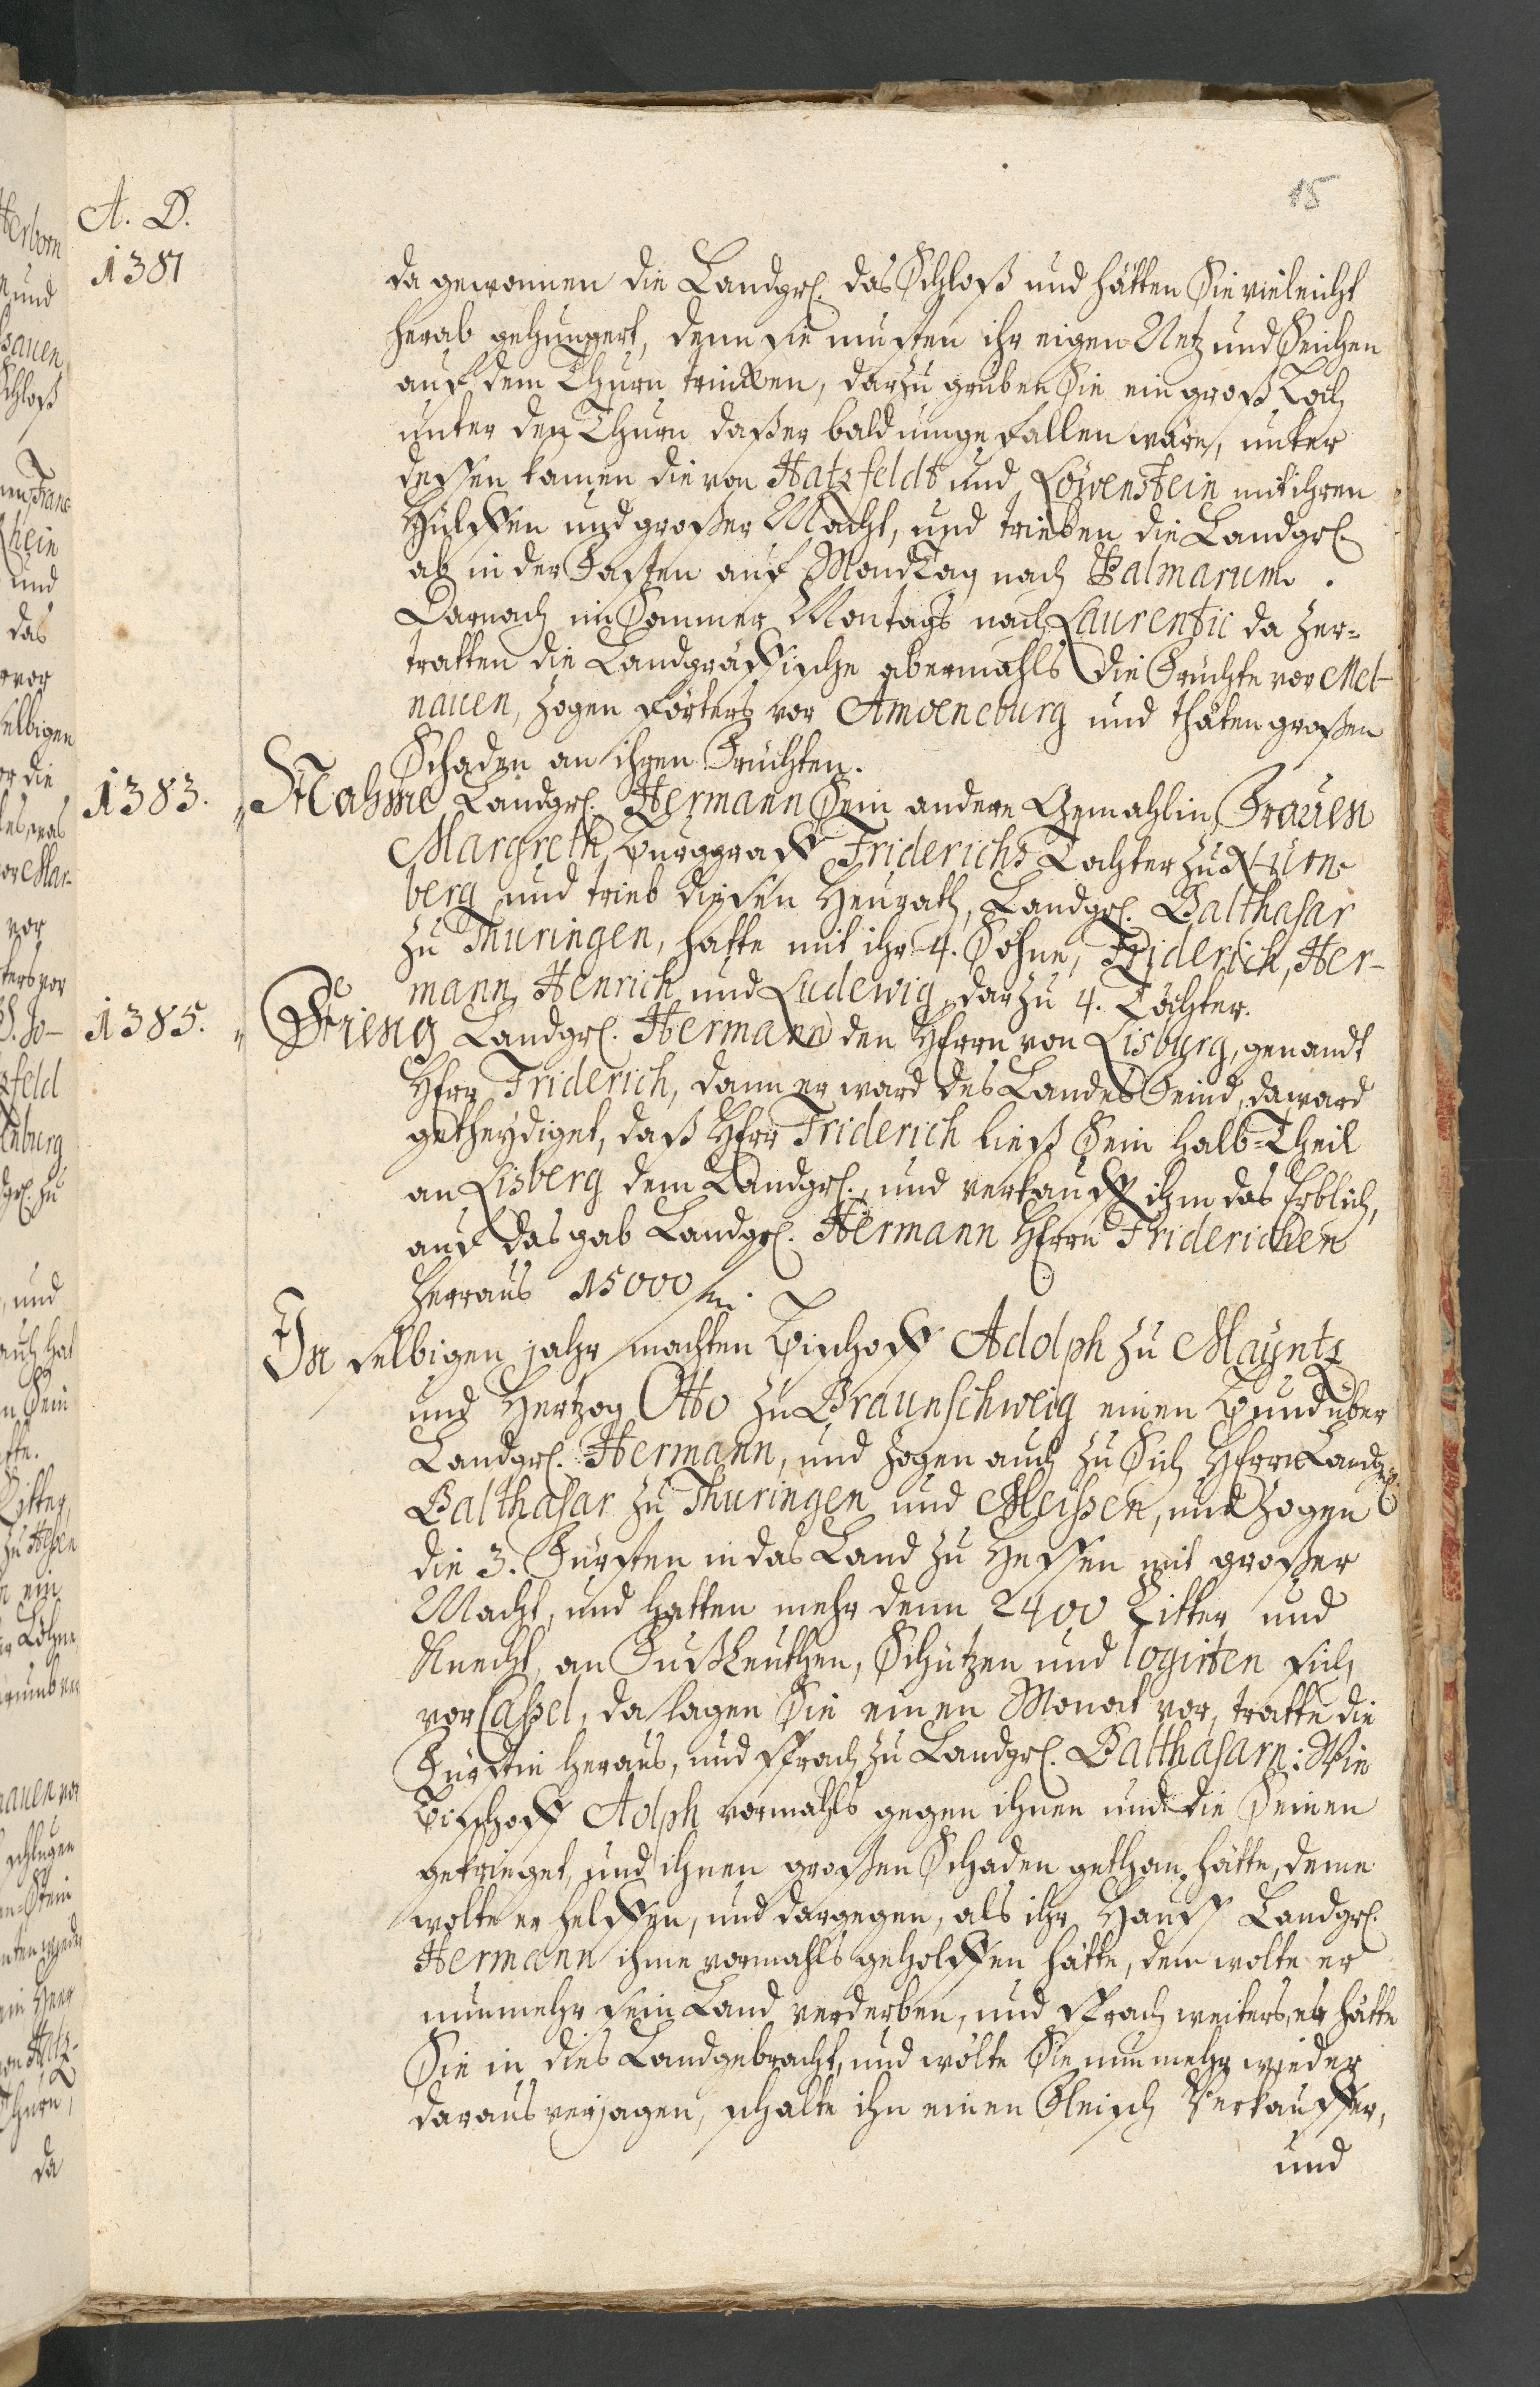 15
A. D.
1381
da gewonnen die Landgr. das Schloß und hätten Sie vieleicht
herab gehungert, denn sie musten ihr eigen Netz und Seichen
auf dem Thurn trincken, darzu gruben Sie ein groß Loch
unter den Thurn daß er bald umgefallen wäre, unter
dessen kamen die von Hatzfeldt und Löwenstein mit ihren
Hülffen und großer Macht, und trieben die Landgr.
ab in der Fasten auf MondTag nach Palmarum.
Darnach im Sommer Montags nach Laurentii da zer-
tratten die Landgräffische abermahls die Früchte vor Mel-
nauen, zogen förters vor Amoeneburg und thäten großen
Schaden an ihren Früchten.
1383. Nahme Landgr. Hermann Sein andere Gemahlin, Frauen
Margreth, Burggraff Friderichs Tochter zu Nürn-
berg und trieb diesen Heurath, Landgr. Balthasar
zu Thuringen, hatte mit ihr 4. Söhne, Friderich, Her-
mann, Henrich und Ludewig, darzu 4. Töchter.
1385. Frieng Landgr. Hermann den Herrn von Lisburg, genandt
Herr Friderich, dann er ward des Landes Feind, da ward
getheydiget, daß Herr Friderich ließ Sein halb-Theil
an Lisberg dem Landgr., und verkaufft ihm das Erblich,
auf das gab Landgr. Hermann Herrn Friderichen
herraus 15000
In selbigen jahr machten Bischoff Adolph zu Mayntz
und Hertzog Otto zu Braunschweig einen Bund über
Landgr. Hermann, und zogen auch zu Sich Herrn Landgr.
Balthasar zu Thuringen und Meissen, und zogen
die 3. Fürsten in das Land zu Hessen mit großer
Macht, und hatten mehr denn 2400 Ritter und
Knecht, an Fußleuthen, Schützen und logirten sich
vor Cassel, da lagen Sie einen Monat vor, tratte die
Fürstin heraus, und sprach zu Landgr. Balthasarn: Wie
Bischoff Adolph vormahls gegen ihnen und die Seinen
gekrieget, und ihnen großen Schaden gethan hätte, deme
wolte er helffen, und dargegen, als ihr Hauß Landgr.
Hermann ihme vormahls geholffen hätte, dem wolte er
nunmehr sein Land verderben, und sprach weiters, er hätte
Sie in dies Land gebracht, und wolte Sie nunmehr wieder
daraus verjagen, schalte ihn einen Fleisch Verkauffer,
und